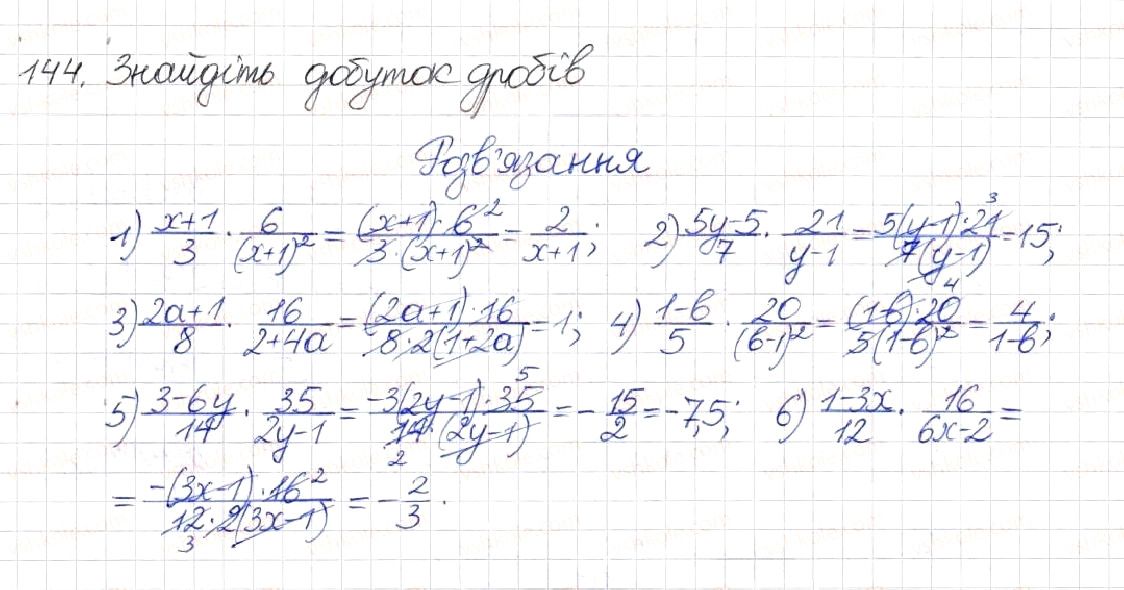 144. Знайдіть добуток дробів
Розв'язання
1) \frac{x+1}{3} \cdot \frac{6}{(x+1)^2} = \frac{(x+1) \cdot 6^2}{3 \cdot (x+1)^2} = \frac{2}{x+1}; 2) \frac{5y-5}{7} \cdot \frac{21}{y-1} = \frac{5(y-1) \cdot 21^3}{7(y-1)} = 15;
3) \frac{2a+1}{8} \cdot \frac{16}{2+4a} = \frac{(2a+1) \cdot 16}{8 \cdot 2(1+2a)} = 1; 4) \frac{1-b}{5} \cdot \frac{20}{(b-1)^2} = \frac{(1-b) \cdot 20^4}{5(1-b)^2} = \frac{4}{1-b};
5) \frac{3-6y}{14} \cdot \frac{35}{2y-1} = \frac{-3(2y-1) \cdot 35^5}{14_2 \cdot (2y-1)} = -\frac{15}{2} = -7,5; 6) \frac{1-3x}{12} \cdot \frac{16}{6x-2} =
= \frac{-(3x-1) \cdot 16^2}{12_3 \cdot 2(3x-1)} = -\frac{2}{3}.